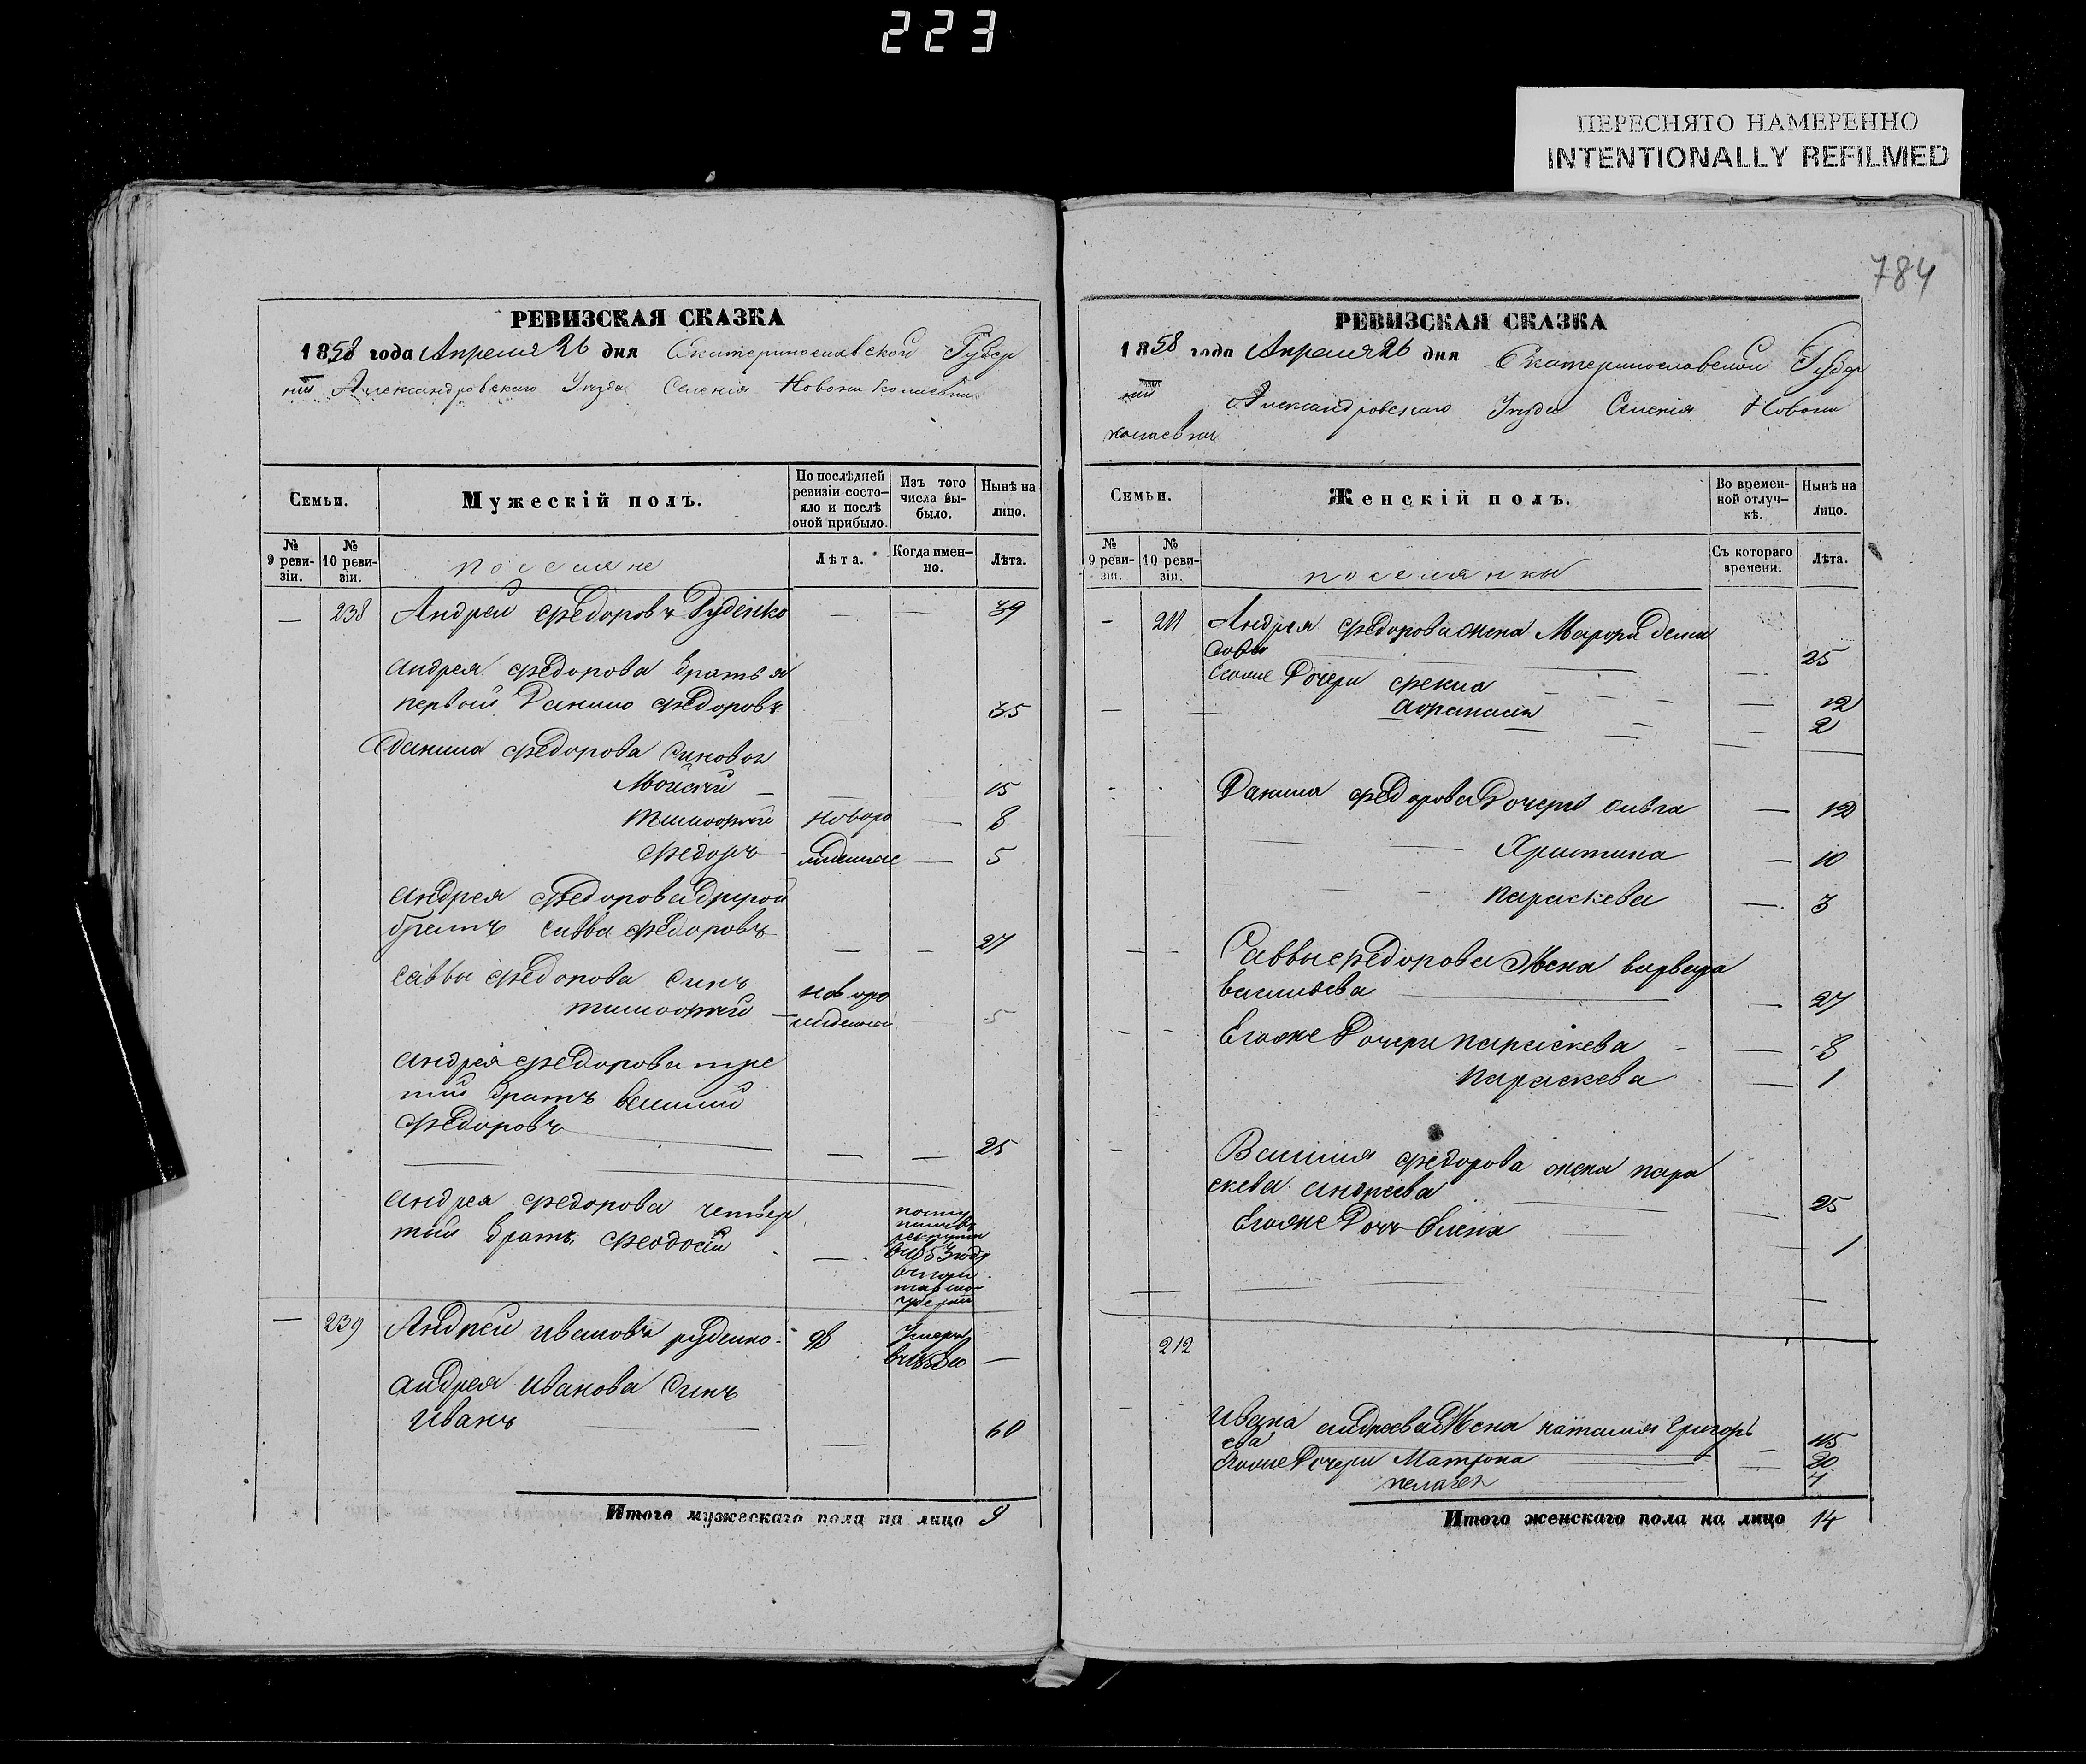 223
ПЕРЕСНЯТО НАМЕРЕННО
INTENTIONALLY REFILMED
784
РЕВИЗСКАЯ СКАЗКА
1858 года Апреля 26 дня Екатеринославской Губер
нии Александровскаго Уезда Селения Новони колаевки
Семьи.
Мужескій полъ.
По послѣдней
ревизіи состо-
яло и послѣ
оной прибыло.
Изъ того
числа вы-
было.
Нынѣ на
лицо.
№
9 реви-
зіи.
№
10 реви-
зіи.
поселяне
Лѣта.
Когда имен-
но.
Лѣта.
— 238 Андрей Федоровъ Руденко — — 39
Андрея Федорова братья
первой Данило Федоровъ 35
Данила Федорова синовья
Моисей — — 15
Тимофей новоро — 8
Федоръ — жденные — 5
Андрея Федорова другой
братъ Савва Федоровъ — — 27
Саввы Федорова синъ
новоро
Тимофей — жденный 5
Андрея Федорова тре
тий братъ Василий
Федоровъ — — 25
Андрея Федорова четвер
тий братъ Феодосій —
въ 1853 году
— 239 Андрей Ивановъ Руденко умеръ
—
Андрея Иванова синъ
Иванъ — 60
Итого мужескаго пола на лицо 9
РЕВИЗСКАЯ СКАЗКА
1858 года Апреля 26 дня Екатеринославской Губер
нии Александровскаго Уезда Селения Новони
колаевки
Семьи.
Женскій полъ.
Во времен-
ной отлуч-
кѣ.
Нынѣ на
лицо.
№
9 реви-
зіи.
№
10 реви-
зіи.
поселянки
Съ котораго
времени.
Лѣта.
— 211 Андрея Федорова жена
— 25
Егоже Дочери Фекла — 12
Афанасия — 2
Данила Федорова Дочери — 12
Христина — 10
Параскева — 3
Саввы Федорова Жена варвара
васильева — 27
Егоже Дочери Параскева — 8
Параскева — 1
Василия Федорова жена пара
скева андреева — 25
Егоже Дочь Елена — 1
212
Ивана андреева Жена наталия Григорь
ева — 45
Егоже Дочери Матрона — 20
пелагея 7
Итого женскаго пола на лицо 14